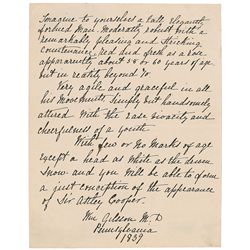 Imagine to yourselves a tall, elegantly
formed Man, Moderately robust with a
remarkably pleasing and striking
Countenance, red and fresh as a rose,
apparently about 58 or 60 years of age
but in reality beyond 70.
Very agile and graceful in all
his Movements, Simply but handsomely
attired. With the ease vivacity and
cheerfulness of a youth
With few or no Marks of age
except a head as White as the driven
Snow and you will be able to form
a just conception of the appearance
of Sir Astley Cooper.
Wm Gibson M.D
Pennsylvania
1839